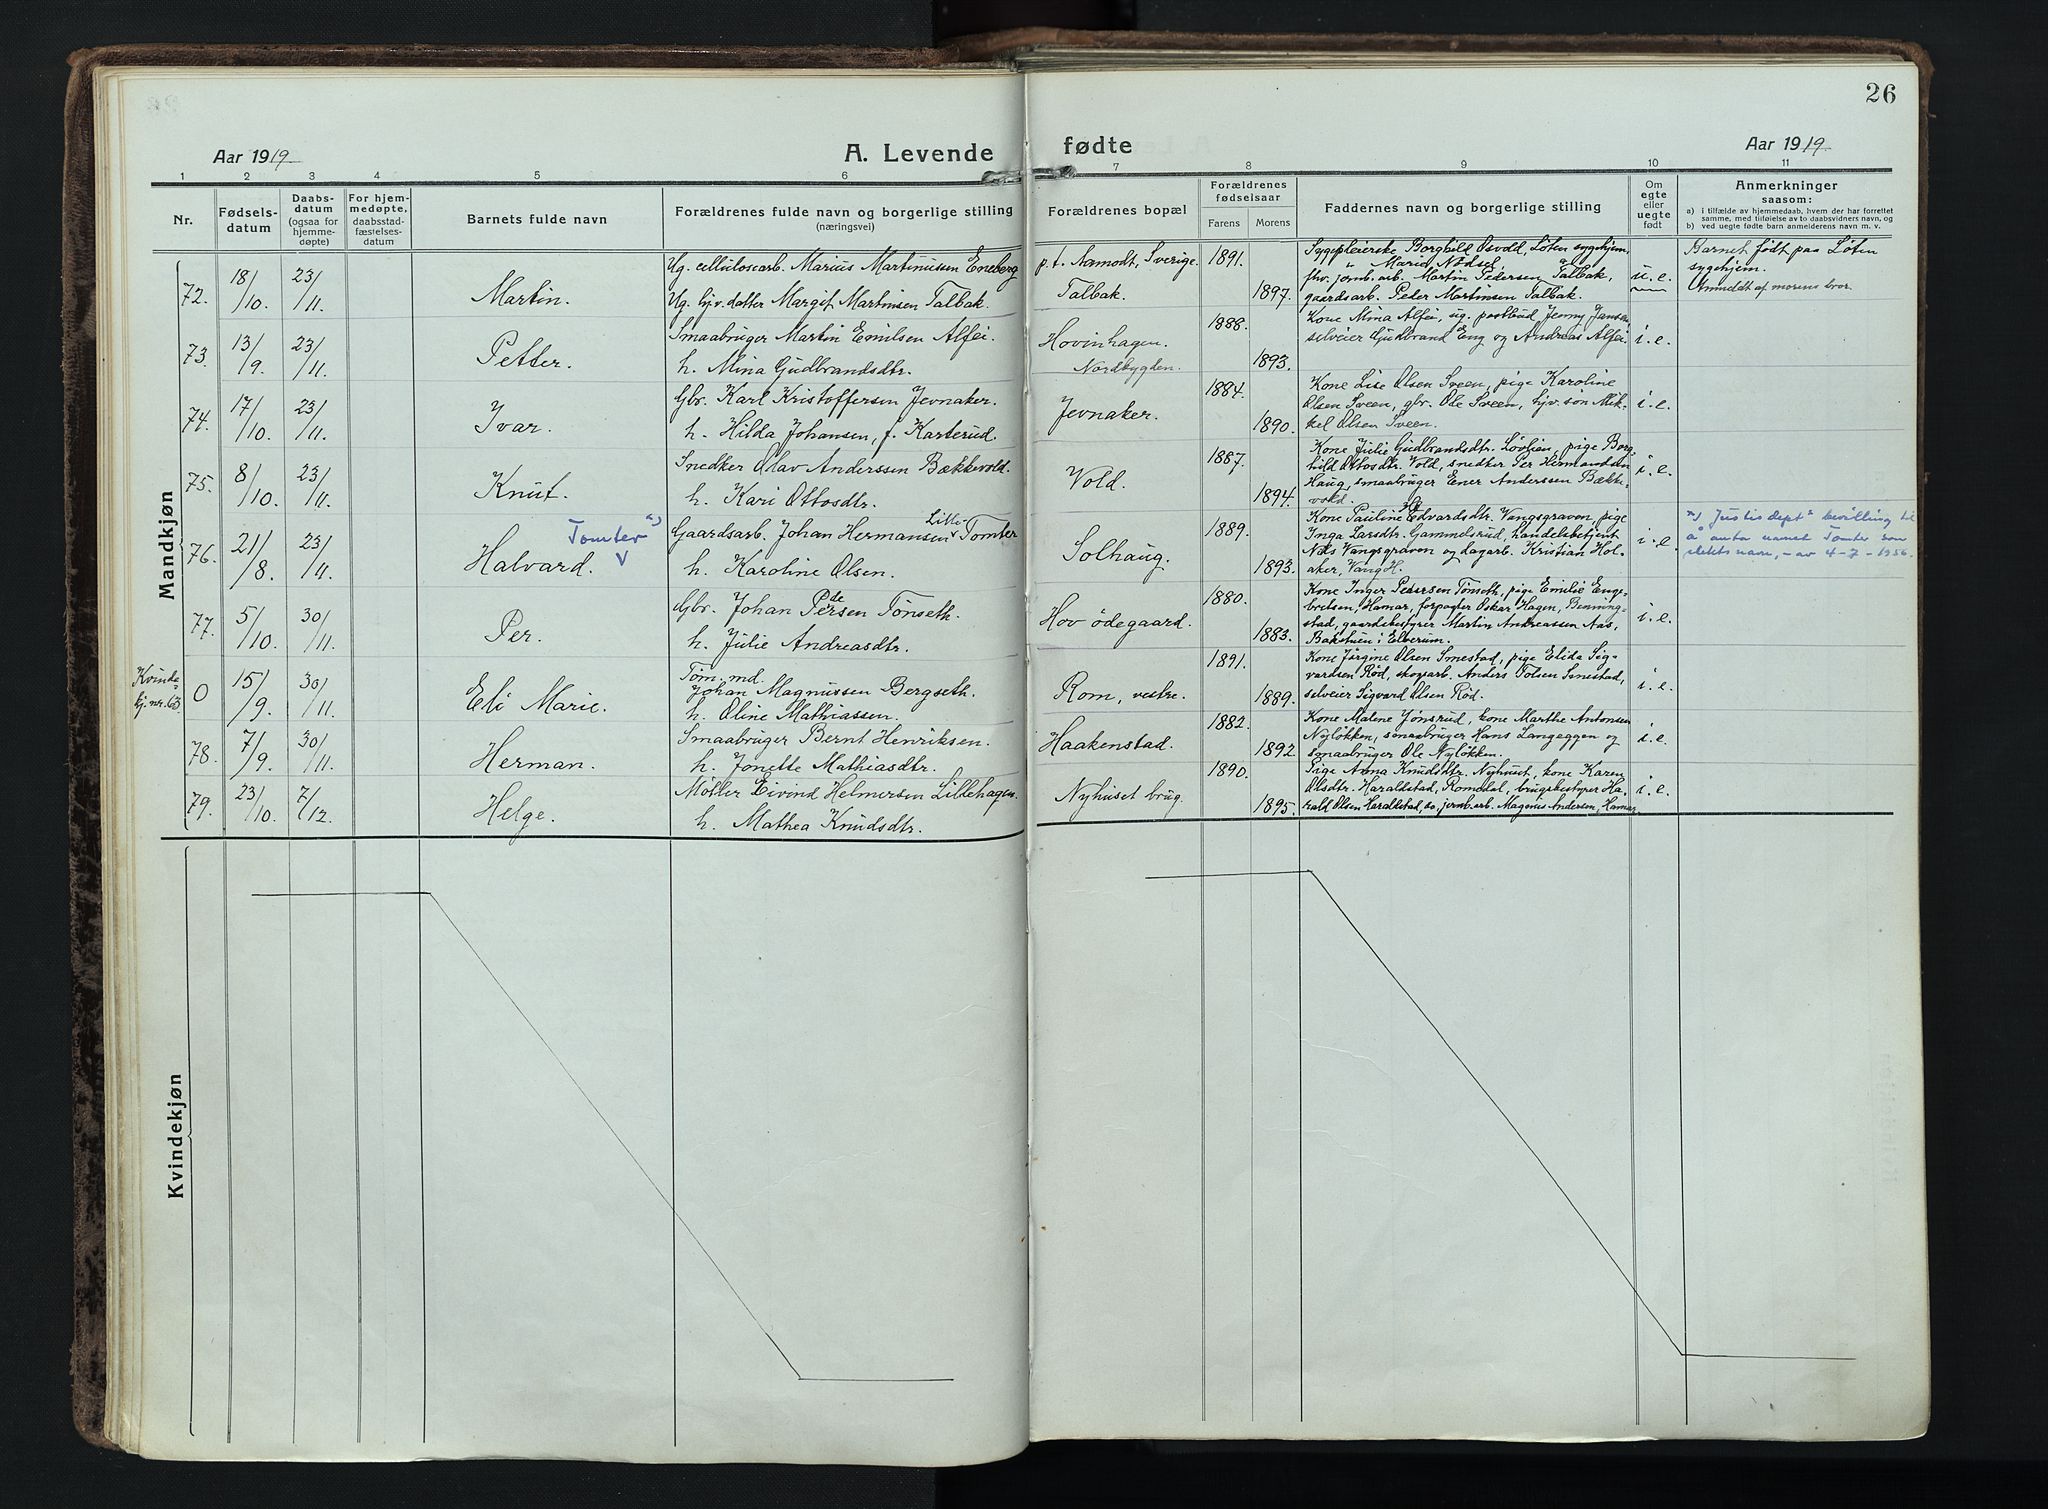 26
Aar 1919
A. Levende fødte
Aar 1919
1 2 3 4 5 6 7 8 9 10 11
Nr.
Fødselsdatum
Daabsdatum (ogsaa for hjemmedøpte)
For hjemmedøpte, daabsstadfæstelsesdatum
Barnets fulde navn
Forældrenes fulde navn og borgerlige stilling (næringsvei)
Forældrenes bopæl
Forældrenes fødselsaar
Farens Morens
Faddernes navn og borgerlige stilling
Om egte eller uegte født
Anmerkninger saasom:
a) i tilfælde av hjemmedaab, hvem der har forrettet samme, med tilføielse av to daabsvidners navn, og
b) ved uegte født barn anmelderens navn m. v.
Mandkjøn
72. 18/10. 23/11. Martin.
Ug. cellulosearb. Marius Martinusen Eneberg
Ug. hjv. datter Margit Martinsen Talbak.
p.t. Aamodt, Sverige.
Talbak.
1891.
1897.
Sygepleierske Borghild Osvold, Løten sygehjem,
" Maria Nødsel "
fhv. jernb. arb. Martin Pedersen Talbak,
gaardsarb. Peder Martinsen Talbak.
u. e.
Barnet født paa Løten
sygehjem.
Anmeldt af morens bror
73. 13/9. 23/11. Petter.
Smaabruger Martin Emilsen Alfei.
h. Mina Gudbrandsdtr.
Hovinhagen.
Nordbygden.
1888.
1893.
Kone Mina Alfei, ug. postbud Jenny Jansen
selveier Gudbrand Eng og Andreas Alfei.
i. e.
74. 17/10. 23/11. Ivar.
Gbr. Karl Kristoffersen Jevnaker.
h. Hilda Johansen, f. Karterud.
Jevnaker.
1884.
1890.
Kone Lise Olsen Sveen, pige Karoline
Olsen Sveen, gbr. Ole Sveen, hjv. søn Mik-
kel Olsen Sveen.
i. e.
75. 8/10. 23/11. Knut.
Snedker Olav Anderssen Bækkevold.
h. Kari Ottosdtr.
Vold.
1887.
1894.
Kone Julie Gudbrandsdtr. Løvlien, pige Borg-
hild Ottosdtr. Vold, snedker Per Hermandsen
Haug, smaabruger Ener Anderssen Bække-
vold.
i. e.
76. 21/8. 23/11. Halvard. Tomter
Gaardsarb. Johan Hermansen Lille-Tomter
h. Karoline Olsen.
Solhaug.
1889.
1893.
Kone Pauline Edvardsdtr. Vangsgraven, pige
Inga Larsdtr. Gammelsrud, handelsbetjent
Nils Vangsgraven og dagarb. Kristian Hol-
aker, Vang H.
i. e.
Justisdept.s bevilling til
å anta navnet Tomter som
slektsnavn, - av 4-7-1956.
77. 5/10. 30/11. Per.
Gbr. Johan Pedersen Tønseth.
h. Julie Andreasdtr.
Hov ødegaard.
1880.
1883.
Kone Inger Pedersen Tønseth, pige Emilie Enge-
bretsen, Hamar, forpagter Oskar Hagen, Benning-
stad, gaardsbestyrer Martin Andreassen Aas,
Bakstuen i Elverum.
i. e.
Kvindekj. nr. 63.
0 15/9. 30/11. Eli Marie.
Tøm. md.
Johan Magnussen Bergseth.
h. Oline Mathiassen.
Rom, vestre.
1891.
1889.
Kone Jørgine Olsen Smestad, pige Elida Sig-
vardsen Rød, skogarb. Anders Tolsen Smestad,
selveier Sigvard Olsen Rød.
i. e.
78. 7/9. 30/11. Herman.
Smaabruger Bernt Henriksen.
h. Jonette Mathiasdtr.
Haakenstad.
1882.
1892.
Kone Malene Jønsrud, kone Marthe Antonsen
Nyløkken, smaabruger Hans Langeggen og
smaabruger Ole Nyløkken.
i. e.
79. 23/10. 7/12. Helge.
Møller Eivind Helmersen Lillehagen.
h. Mathea Knudsdtr.
Nyhuset brug.
1890.
1895.
Pige Anna Knudsdtr. Nyhuset, kone Karen
Olsdtr. Haraldstad, Romedal, brugsbestyrer Ha-
rald Olsen Haraldstad, jernb. arb. Magnus Andersen, Hamar.
i. e.
Kvindekjøn